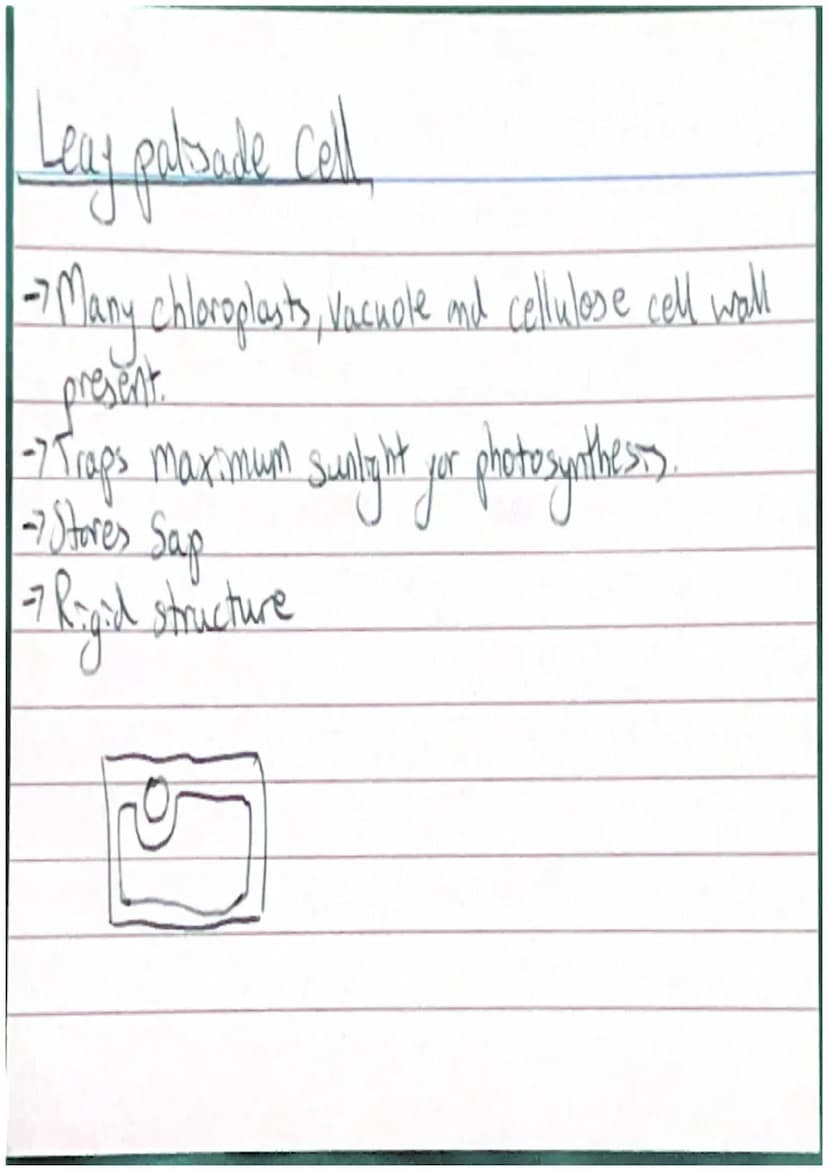 Leaf palisade Cell
→ Many chloroplasts, Vacuole and cellulose cell wall
present.
→ Traps maximum sunlight for photosynthesis.
→ Stores Sap
→ Rigid structure